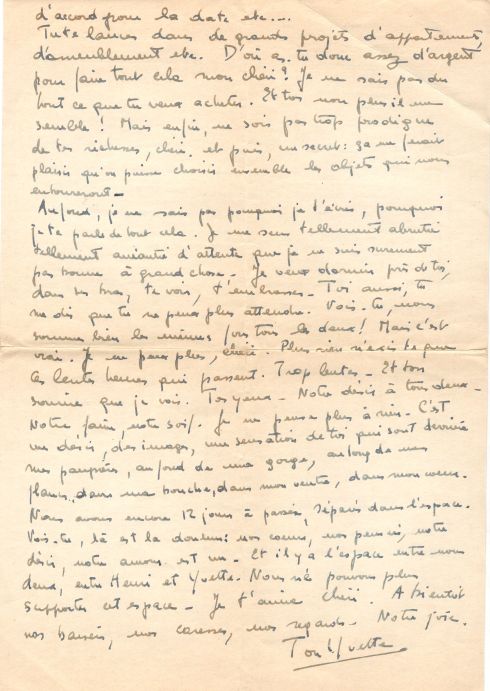 d'accord pour la date etc....
Tu te lances dans de grands projets d'appartement,
d'ameublement etc. D'où as-tu donc assez d'argent
pour faire tout cela mon chéri? Je ne sais pas du
tout ce que tu veux acheter. Et toi non plus il me
semble! Mais enfin, ne sois pas trop prodigue
de tes richesses, chéri. et puis, un secret: ça me ferait
plaisir qu'on puisse choisir ensemble les objets qui nous
entoureront -
Au fond, je ne sais pas pourquoi je t'écris, pourquoi
je te parle de tout cela. Je me sens tellement abrutie
tellement d'attente que je ne suis surement
pas bonne à grand chose - Je veux dormir près de toi,
dans tes bras, te voir, t'embrasser - Toi aussi, tu
me dis que tu ne peux plus attendre. Vois-tu, nous
sommes bien les mêmes fous tous les deux! Mais c'est
vrai. Je ne peux plus, chéri. Plus rien n'existe que
ces lentes heures qui passent. Trop lentes - Et ton
sourire que je vois. Tes yeux - Notre désir à tous deux -
Notre faim, notre soif. Je ne pense plus à rien - C'est
un désir, des images, une sensation de toi qui sont derrière
mes paupières, au fond de ma gorge, au long de mes
flancs, dans ma bouche, dans mon ventre, dans mon coeur.
Nous avons encore 12 jours à passer, séparés dans l'espace.
Vois-tu, là est la douleur: nos coeurs, nos pensées, notre
désir, notre amour est un - Et il y a l'espace entre nous
deux, entre Henri et Yvette. Nous ne pouvons plus
supporter cet espace - Je t'aime chéri. A bientôt
nos baisers, nos caresses, nos regards - Notre joie.
Ton Yvette